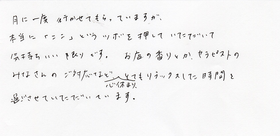 月に一度 行かせてもらっていますが、
本当に「ここ」というツボを押していただいて
気持ちいい限りです。 お店の香りとか、セラピストの
みなさんのご対応など とてもリラックスした時間を
心休まり
過ごさせていただいています。